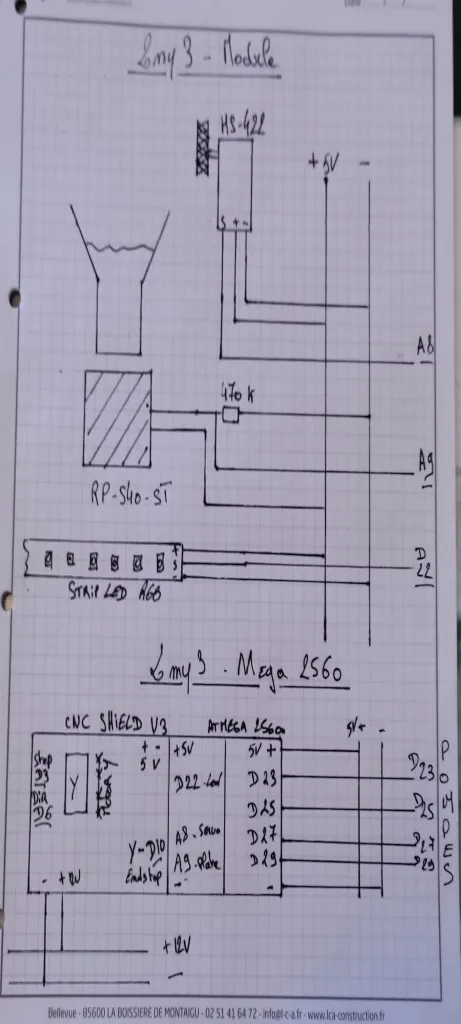 Emy 3 - Module
HS-422
+5V -
S + -
A8
470 K
A9
RP-S40-ST
+
S
-
D
22
STRIP LED RGB
Emy 3 - Mega 2560
CNC SHIELD V3 ATMEGA 2560 5V+ -
Step
D3
DIR
D6
Y
+ -
5 V
+5V
D22-Led
A8-Servo
A9-
-
Y-D10
Endstop
5V +
D23
D25
D27
D29
-
D23
D25
D27
D29
POMPES
- +12V
+12V
-
Bellevue - 85600 LA BOISSIERE DE MONTAIGU - 02 51 41 64 72 - info@l-c-a.fr - www.lca-construction.fr